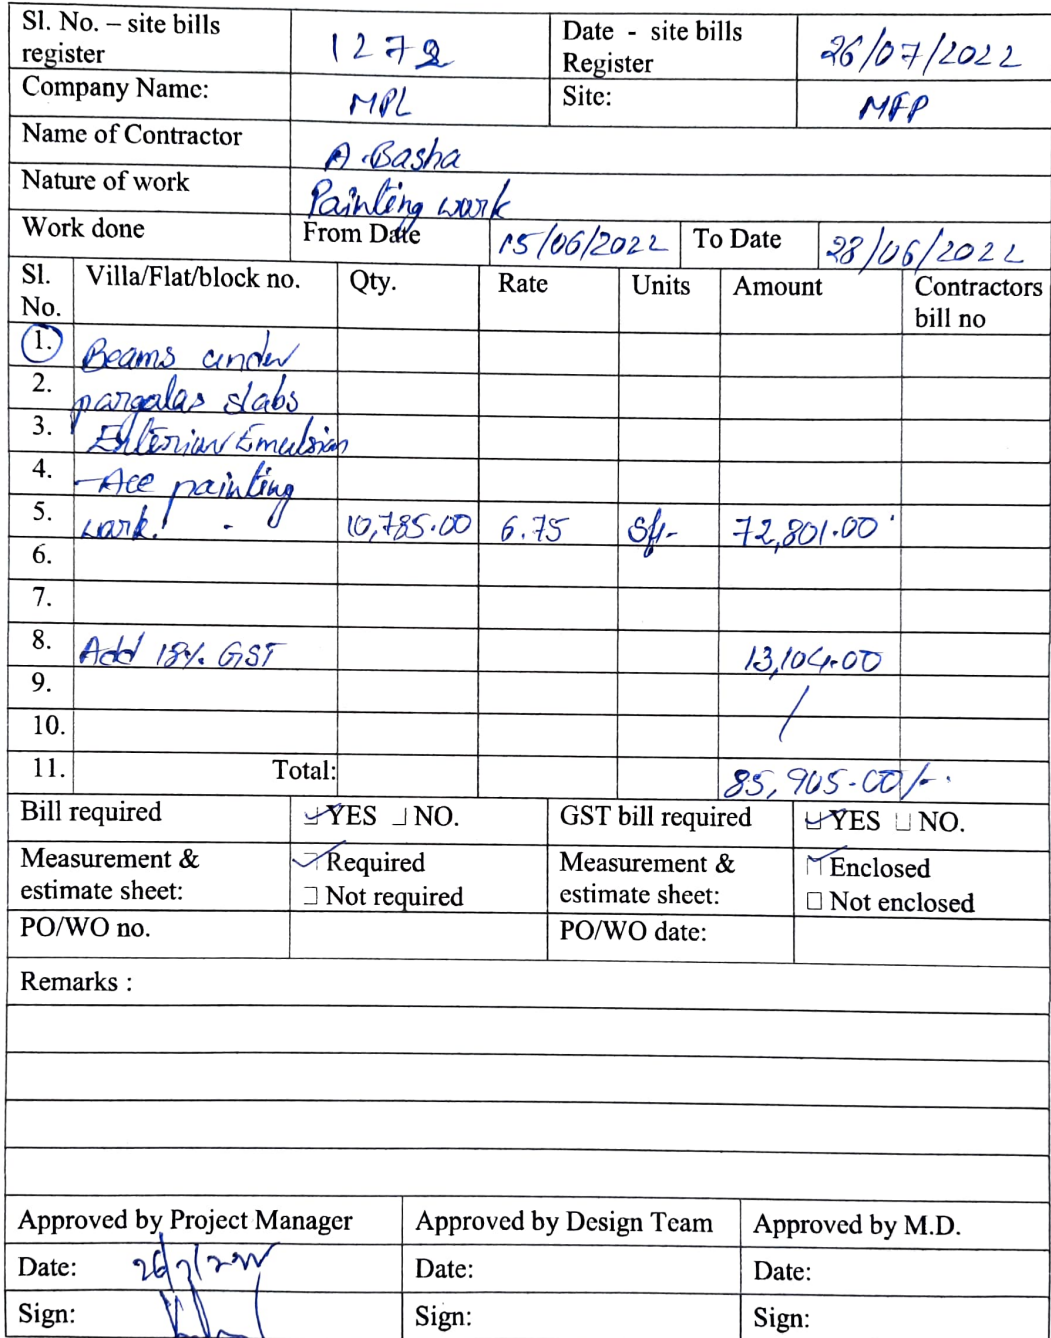 Sl. No. – site bills register 1272 Date - site bills Register 26/07/2022
Company Name: MPL Site: MFP
Name of Contractor A. Basha
Nature of work Painting work
Work done From Date 15/06/2022 To Date 28/06/2022
Sl. No. Villa/Flat/block no. Qty. Rate Units Amount Contractors bill no
1. Beams under
2. pargolas slabs
3. Exterior Emulsion
4. -Ace painting
5. work. 10,785.00 6.75 Sft- 72,801.00
6.
7.
8. Add 18% GST 13,104.00
9.
10.
11. Total: 85,905.00/-
Bill required YES NO. GST bill required YES NO.
Measurement & estimate sheet: Required Not required Measurement & estimate sheet: Enclosed Not enclosed
PO/WO no. PO/WO date:
Remarks :
Approved by Project Manager Approved by Design Team Approved by M.D.
Date: Date: Date:
Sign: Sign: Sign: